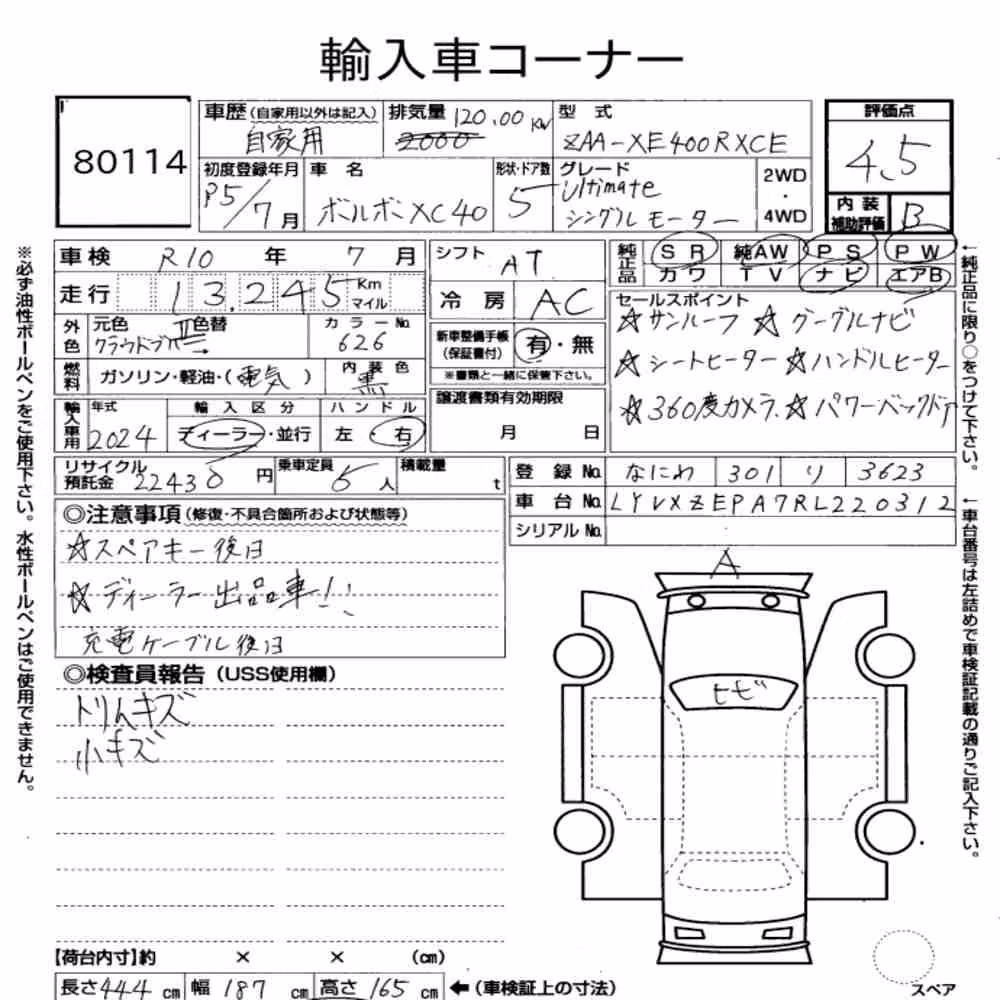 輸入車コーナー
80114
車歴(自家用以外は記入) 自家用
排気量 120.00 KW 2000
型式 ZAA-XE400RXCE
評価点 4.5
初度登録年月 R5/7月
車名 ボルボXC40
形状・ドア数 5
グレード Ultimate シングルモーター
2WD・4WD
内装補助評価 B
車検 R10年 7月
シフト AT
純正品 SR 純AW PS PW
カワ TV ナビ エアB
走行 13,245 Km マイル
冷房 AC
セールスポイント
☆サンルーフ ☆グーグルナビ
☆シートヒーター ☆ハンドルヒーター
☆360度カメラ.☆パワーバックドア
外色 元色 色替
クラウドブルー
カラーNo. 626
新車整備手帳(保証書付) 有・無
※書類と一緒に保管下さい。
燃料 ガソリン・軽油・(電気)
内装色 黒
譲渡書類有効期限
月 日
輸入車用 年式 2024
輸入区分 ディーラー・並行
ハンドル 左・右
リサイクル預託金 22430円
乗車定員 5人
積載量 t
登録No. なにわ 301 り 3623
車台No. LYVXZEPA7RL220312
シリアルNo.
◎注意事項(修復・不具合箇所および状態等)
☆スペアキー後日
☆ディーラー出品車!!
充電ケーブル後日
◎検査員報告(USS使用欄)
トリムキズ
小キズ
A
ヒビ
【荷台内寸】約 × × (cm)
長さ444cm 幅187cm 高さ165cm ←(車検証上の寸法)
スペア
※必ず油性ボールペンをご使用下さい。水性ボールペンはご使用できません。
←純正品に限り○をつけて下さい。
←車台番号は左詰めで車検証記載の通りご記入下さい。